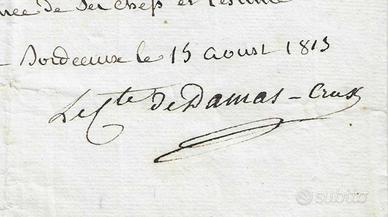 de ses chefs et l'estime
Bordeaux le 15 aoust 1815
Le Cte de Damas-Crux
subito